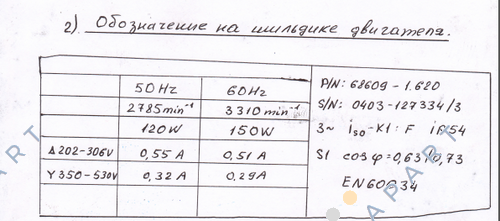 2) Обозначение на шильдике двигателя.
50Hz 60Hz
2785min⁻¹ 3310min⁻¹
120W 150W
Δ202-306V 0,55 A 0,51 A
Y350-530V 0,32 A 0.29A
P/N: 68609-1.620
S/N: 0403-127334/3
3~ iso-K1: F iP54
S1 cosφ=0,63/0,73
EN60034
PART
PART